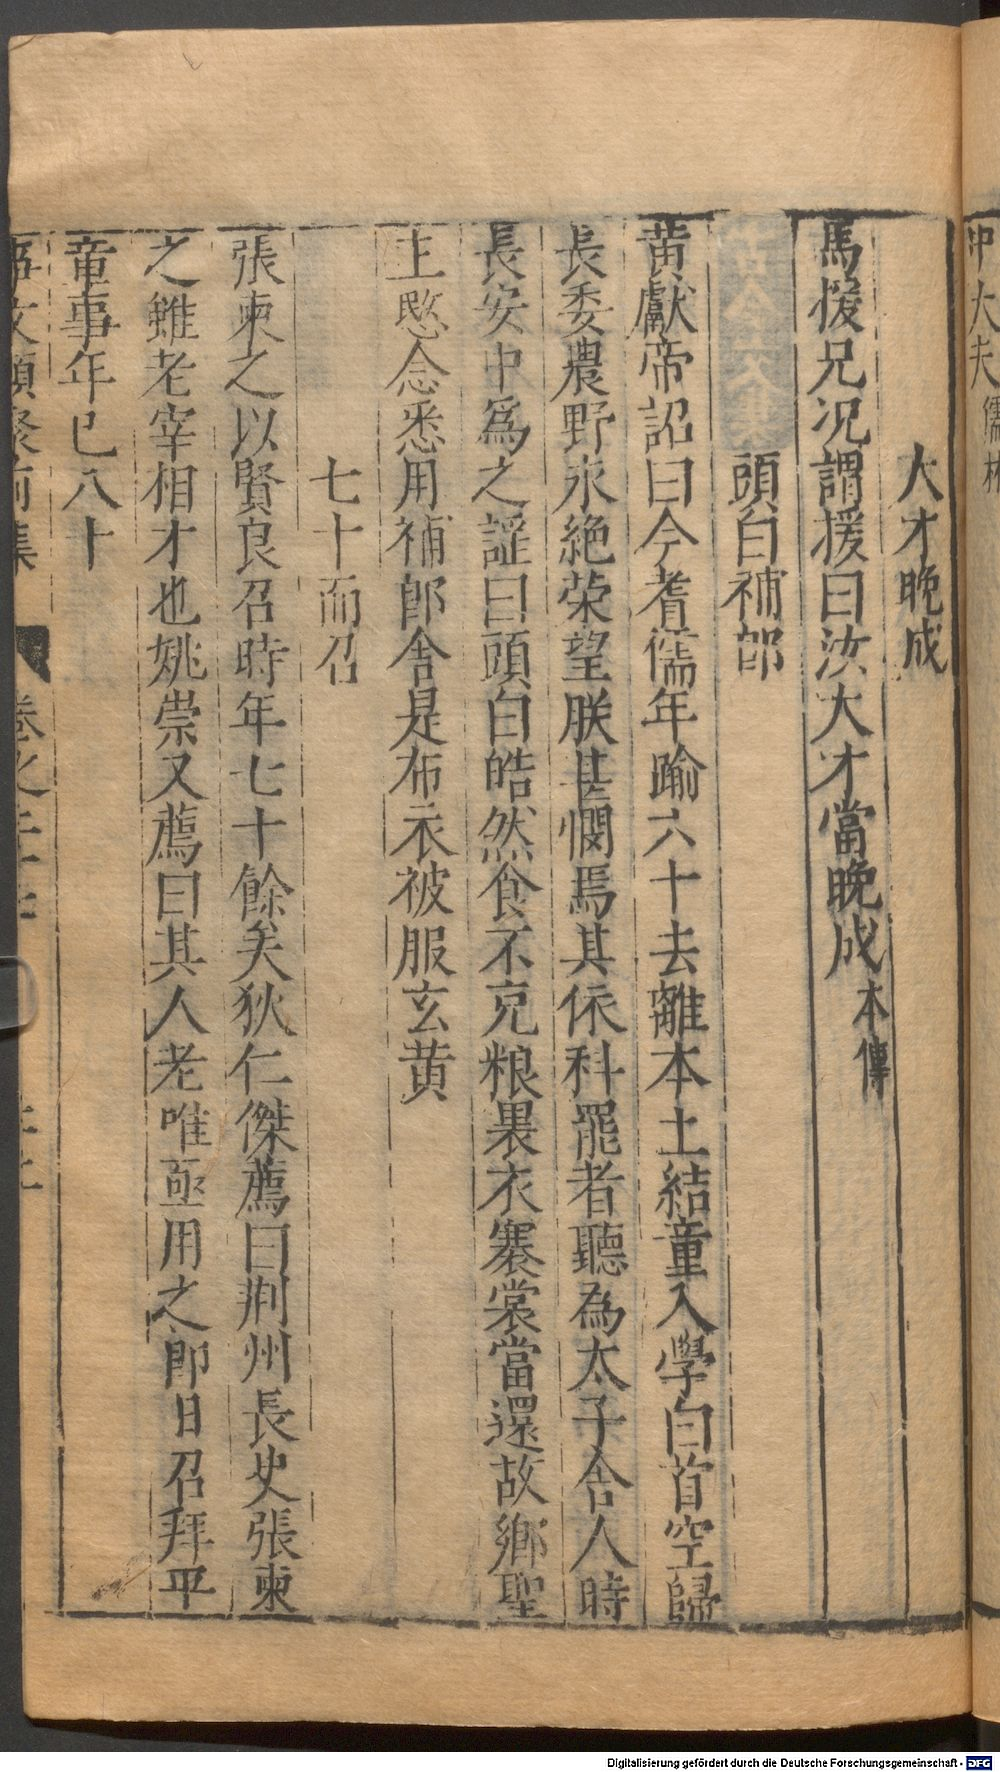 中大夫儒林
大才晚成
馬援兄况謂援曰汝大才當晚成本傳
頭白補郎
黄獻帝詔曰今耆儒年踰六十去離本土結童入學白首空歸
長委農野永絶荣望朕甚憫焉其依科罷者聽為太子舍人時
長安中爲之謡曰頭白皓然食不克粮褁衣褰裳當還故鄉聖
主愍念悉用補郎舍是布衣被服玄黄
七十而召
張柬之以賢良召時年七十餘矣狄仁傑薦曰荆州長史張柬
之雖老宰相才也姚崇又薦曰其人老唯亟用之即日召拜平
章事年已八十
事文類聚前集 卷之二十
Digitalisierung gefördert durch die Deutsche Forschungsgemeinschaft - DFG